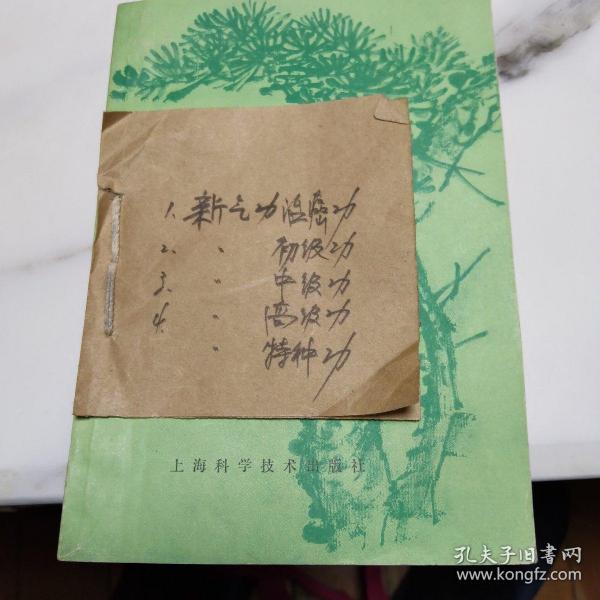 1. 新气功治癌功
2. 〃 初级功
3. 〃 中级功
4. 〃 高级功
〃 特种功
上海科学技术出版社
孔夫子旧书网
www.kongfz.com